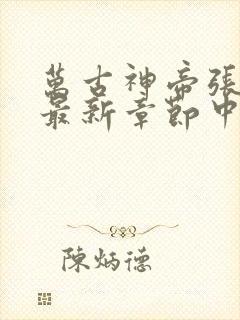 萬古神帝張
最新章節中
陳炳德